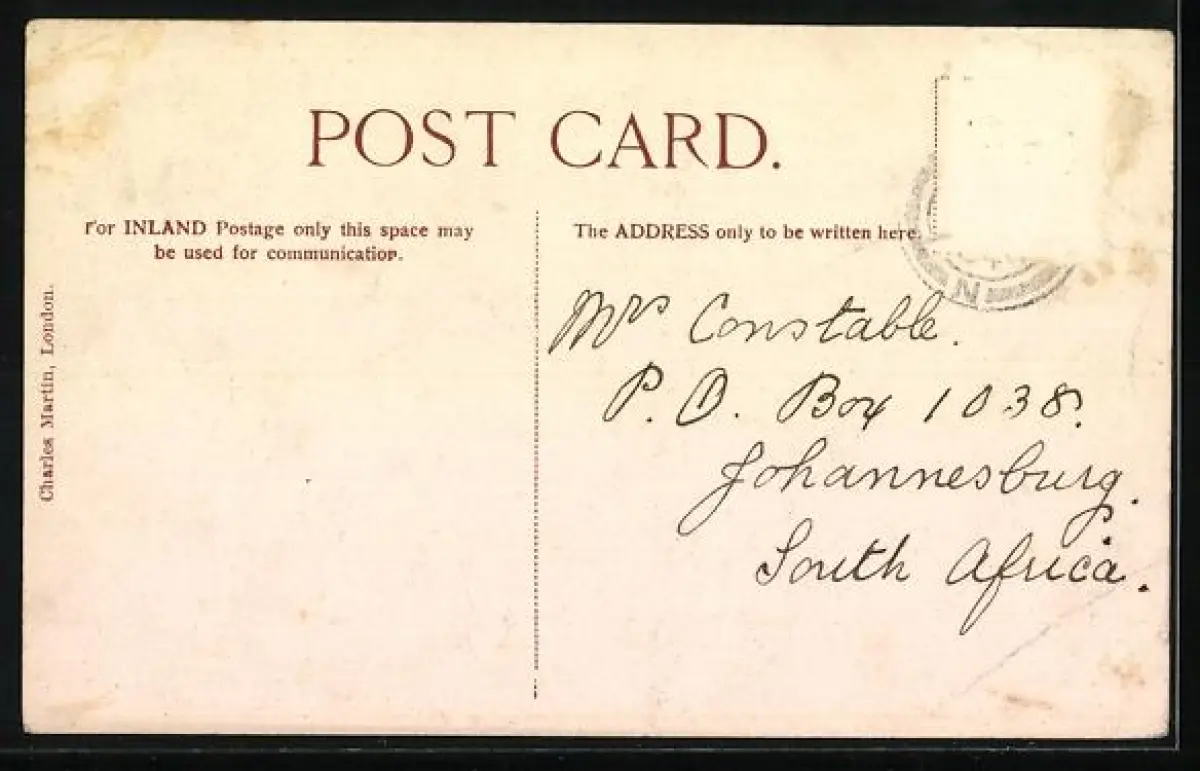 POST CARD.
For INLAND Postage only this space may
be used for communication.
The ADDRESS only to be written here.
Charles Martin, London.
Mrs Constable.
P.O. Box 1038.
Johannesburg.
South Africa.